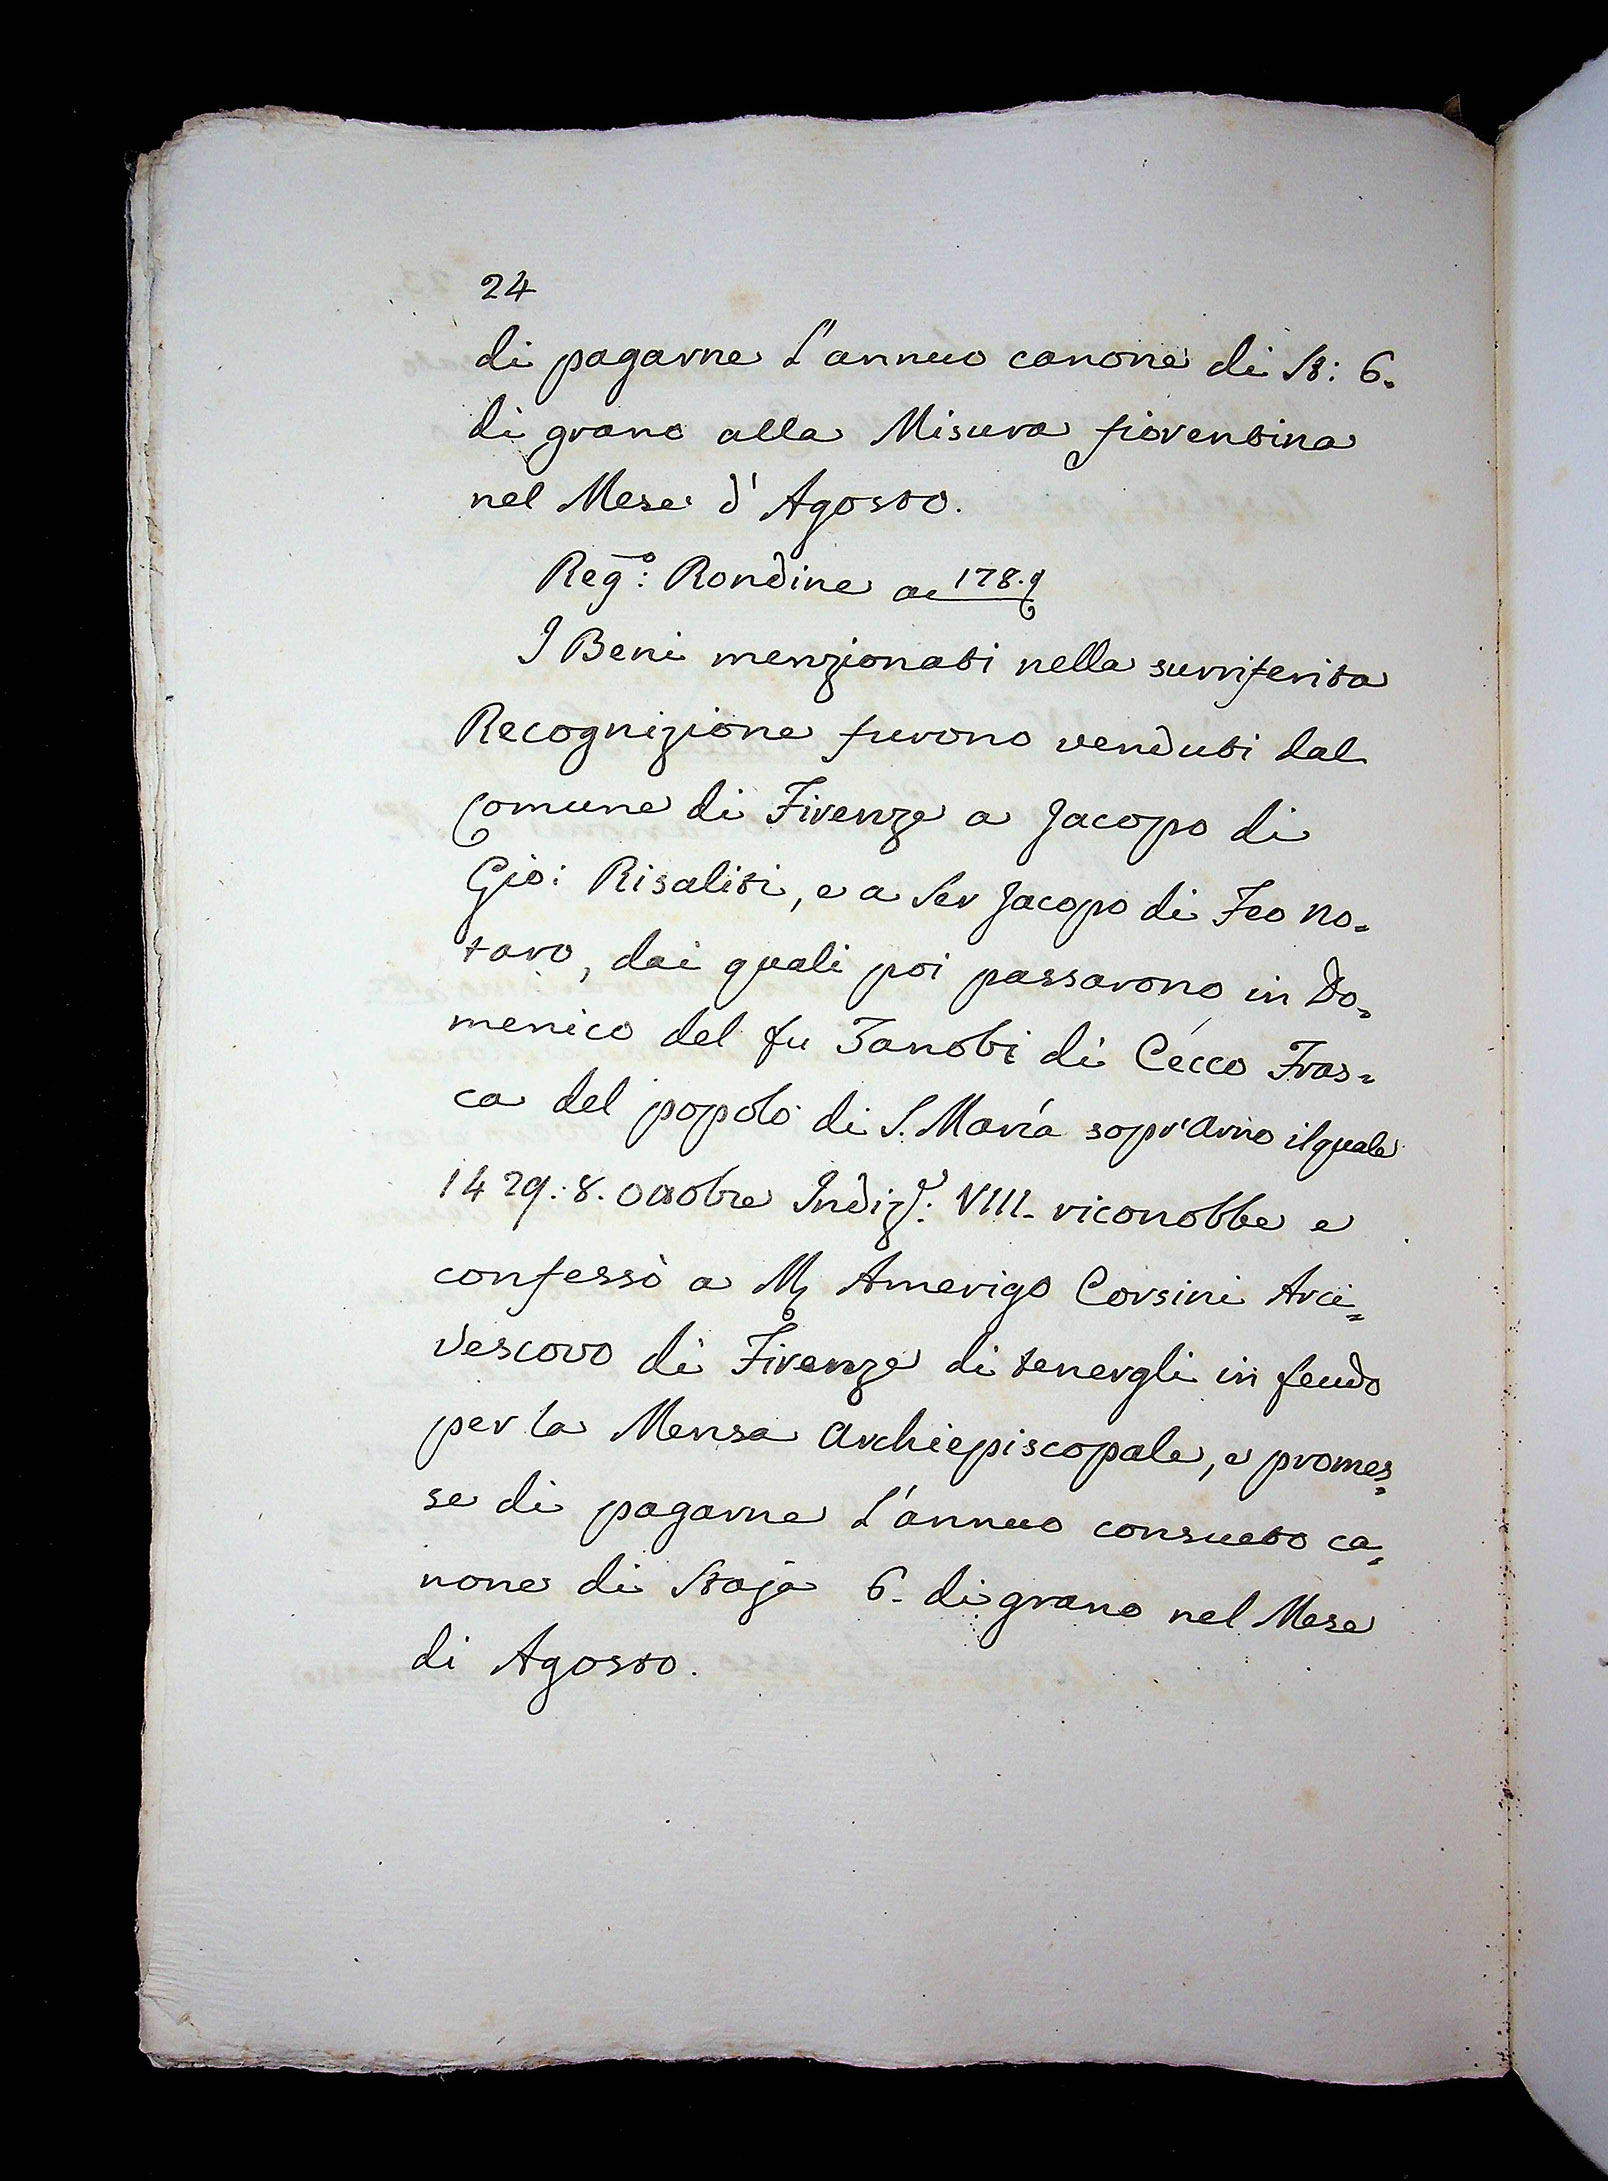 24
di pagarne l'annuo canone di St: 6.
di grano alla Misura fiorentina
nel Mese d'Agosto.
Reg.º: Rondine a 178.
I Beni menzionati nella surriferita
Recognizione furono venduti dal
Comune di Firenze a Jacopo di
Gio: Risaliti, e a Ser Jacopo di Feo No=
taro, dai quali poi passarono in Do=
menico del fu Zanobi di Cecco Fras=
ca del popolo di S. Maria sopr'Arno il quale
1429: 8. Ottobre Indiz.e: VIII. riconobbe e
confessò a M. Amerigo Corsini Arci=
vescovo di Firenze di tenergli in feudo
per la Mensa Archiepiscopale, e promes=
se di pagarne l'annuo consueto ca=
none di Staja 6. di grano nel Mese
di Agosto.